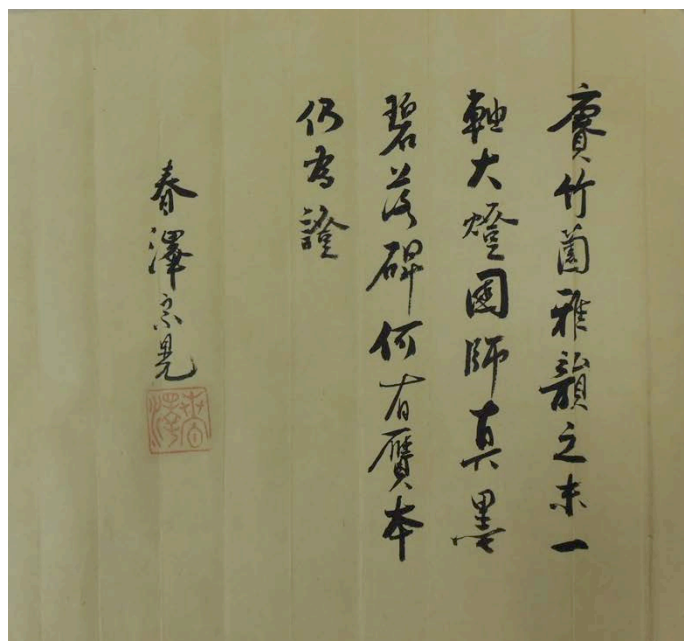 賡竹菌雅韻之末一
軸大燈國師真墨
碧落碑何有贋本
仍為證
春澤宗晃
春澤